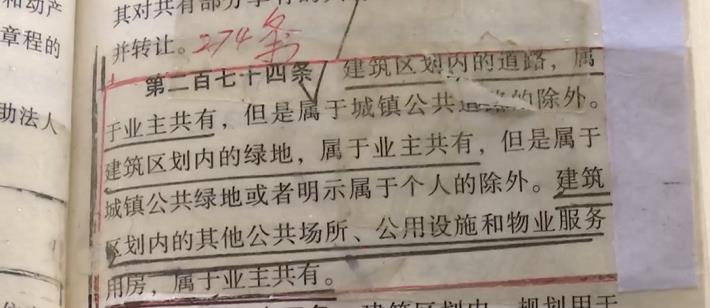 和动产
章程的
助法人
其对共有部分享有的共
并转让。274条
第二百七十四条 建筑区划内的道路，属
于业主共有，但是属于城镇公共道路的除外。
建筑区划内的绿地，属于业主共有，但是属于
城镇公共绿地或者明示属于个人的除外。建筑
区划内的其他公共场所、公用设施和物业服务
用房，属于业主共有。
建筑区划内，规划用于